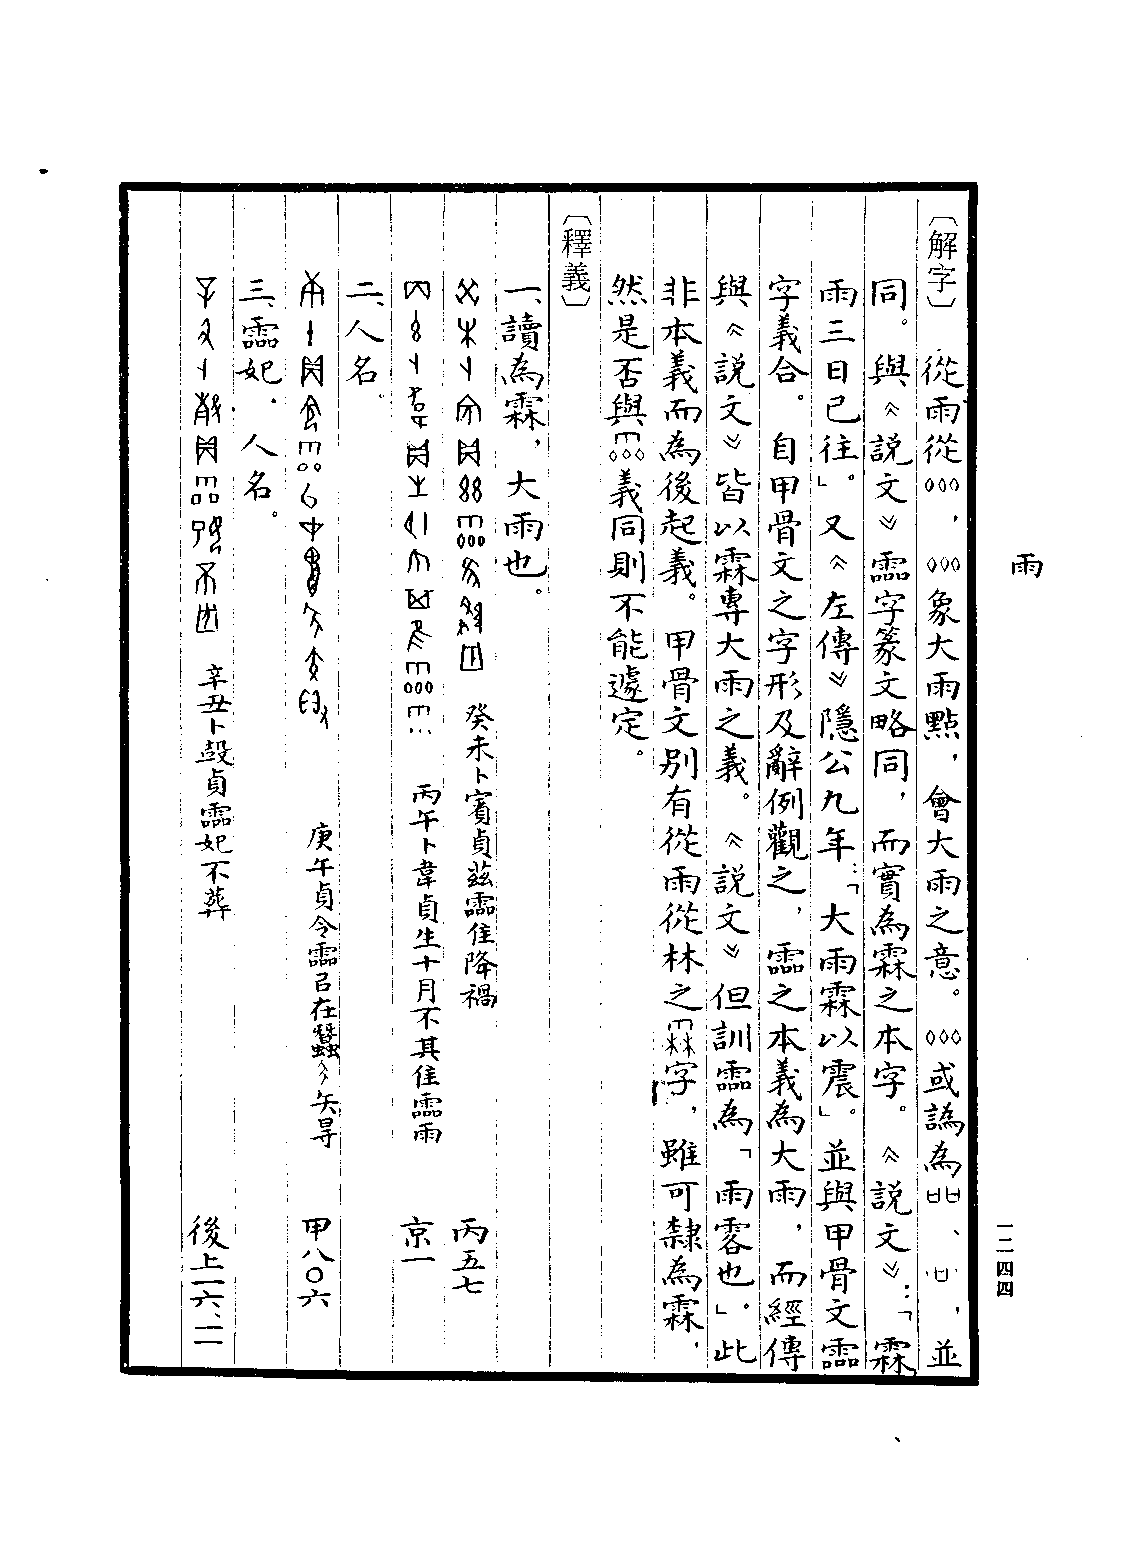 雨
一二四四
〔解字〕從雨從，象大雨點，會大雨之意。或譌為、，並
同。與《說文》霝字篆文略同，而實為霖之本字。《說文》：「霖
雨三日已往」。又《左傳》隱公九年：「大雨霖以震」。並與甲骨文霝
字義合。自甲骨文之字形及辭例觀之，霝之本義為大雨，而經傳
與《說文》皆以霖專大雨之義。《說文》但訓霝為「雨零也」，此
非本義而為後起義。甲骨文別有從雨從林之字，雖可隸為霖，
然是否與義同則不能遽定。
〔釋義〕
一、讀為霖，大雨也。
癸未卜賓貞茲霝隹降禍 丙五七
丙午卜韋貞生十月不其隹霝雨 京一
二、人名。
庚午貞令霝㠯在矢𢍰 甲八〇六
三、霝妃，人名。
辛丑卜㱿貞霝妃不葬 後上一六、一一